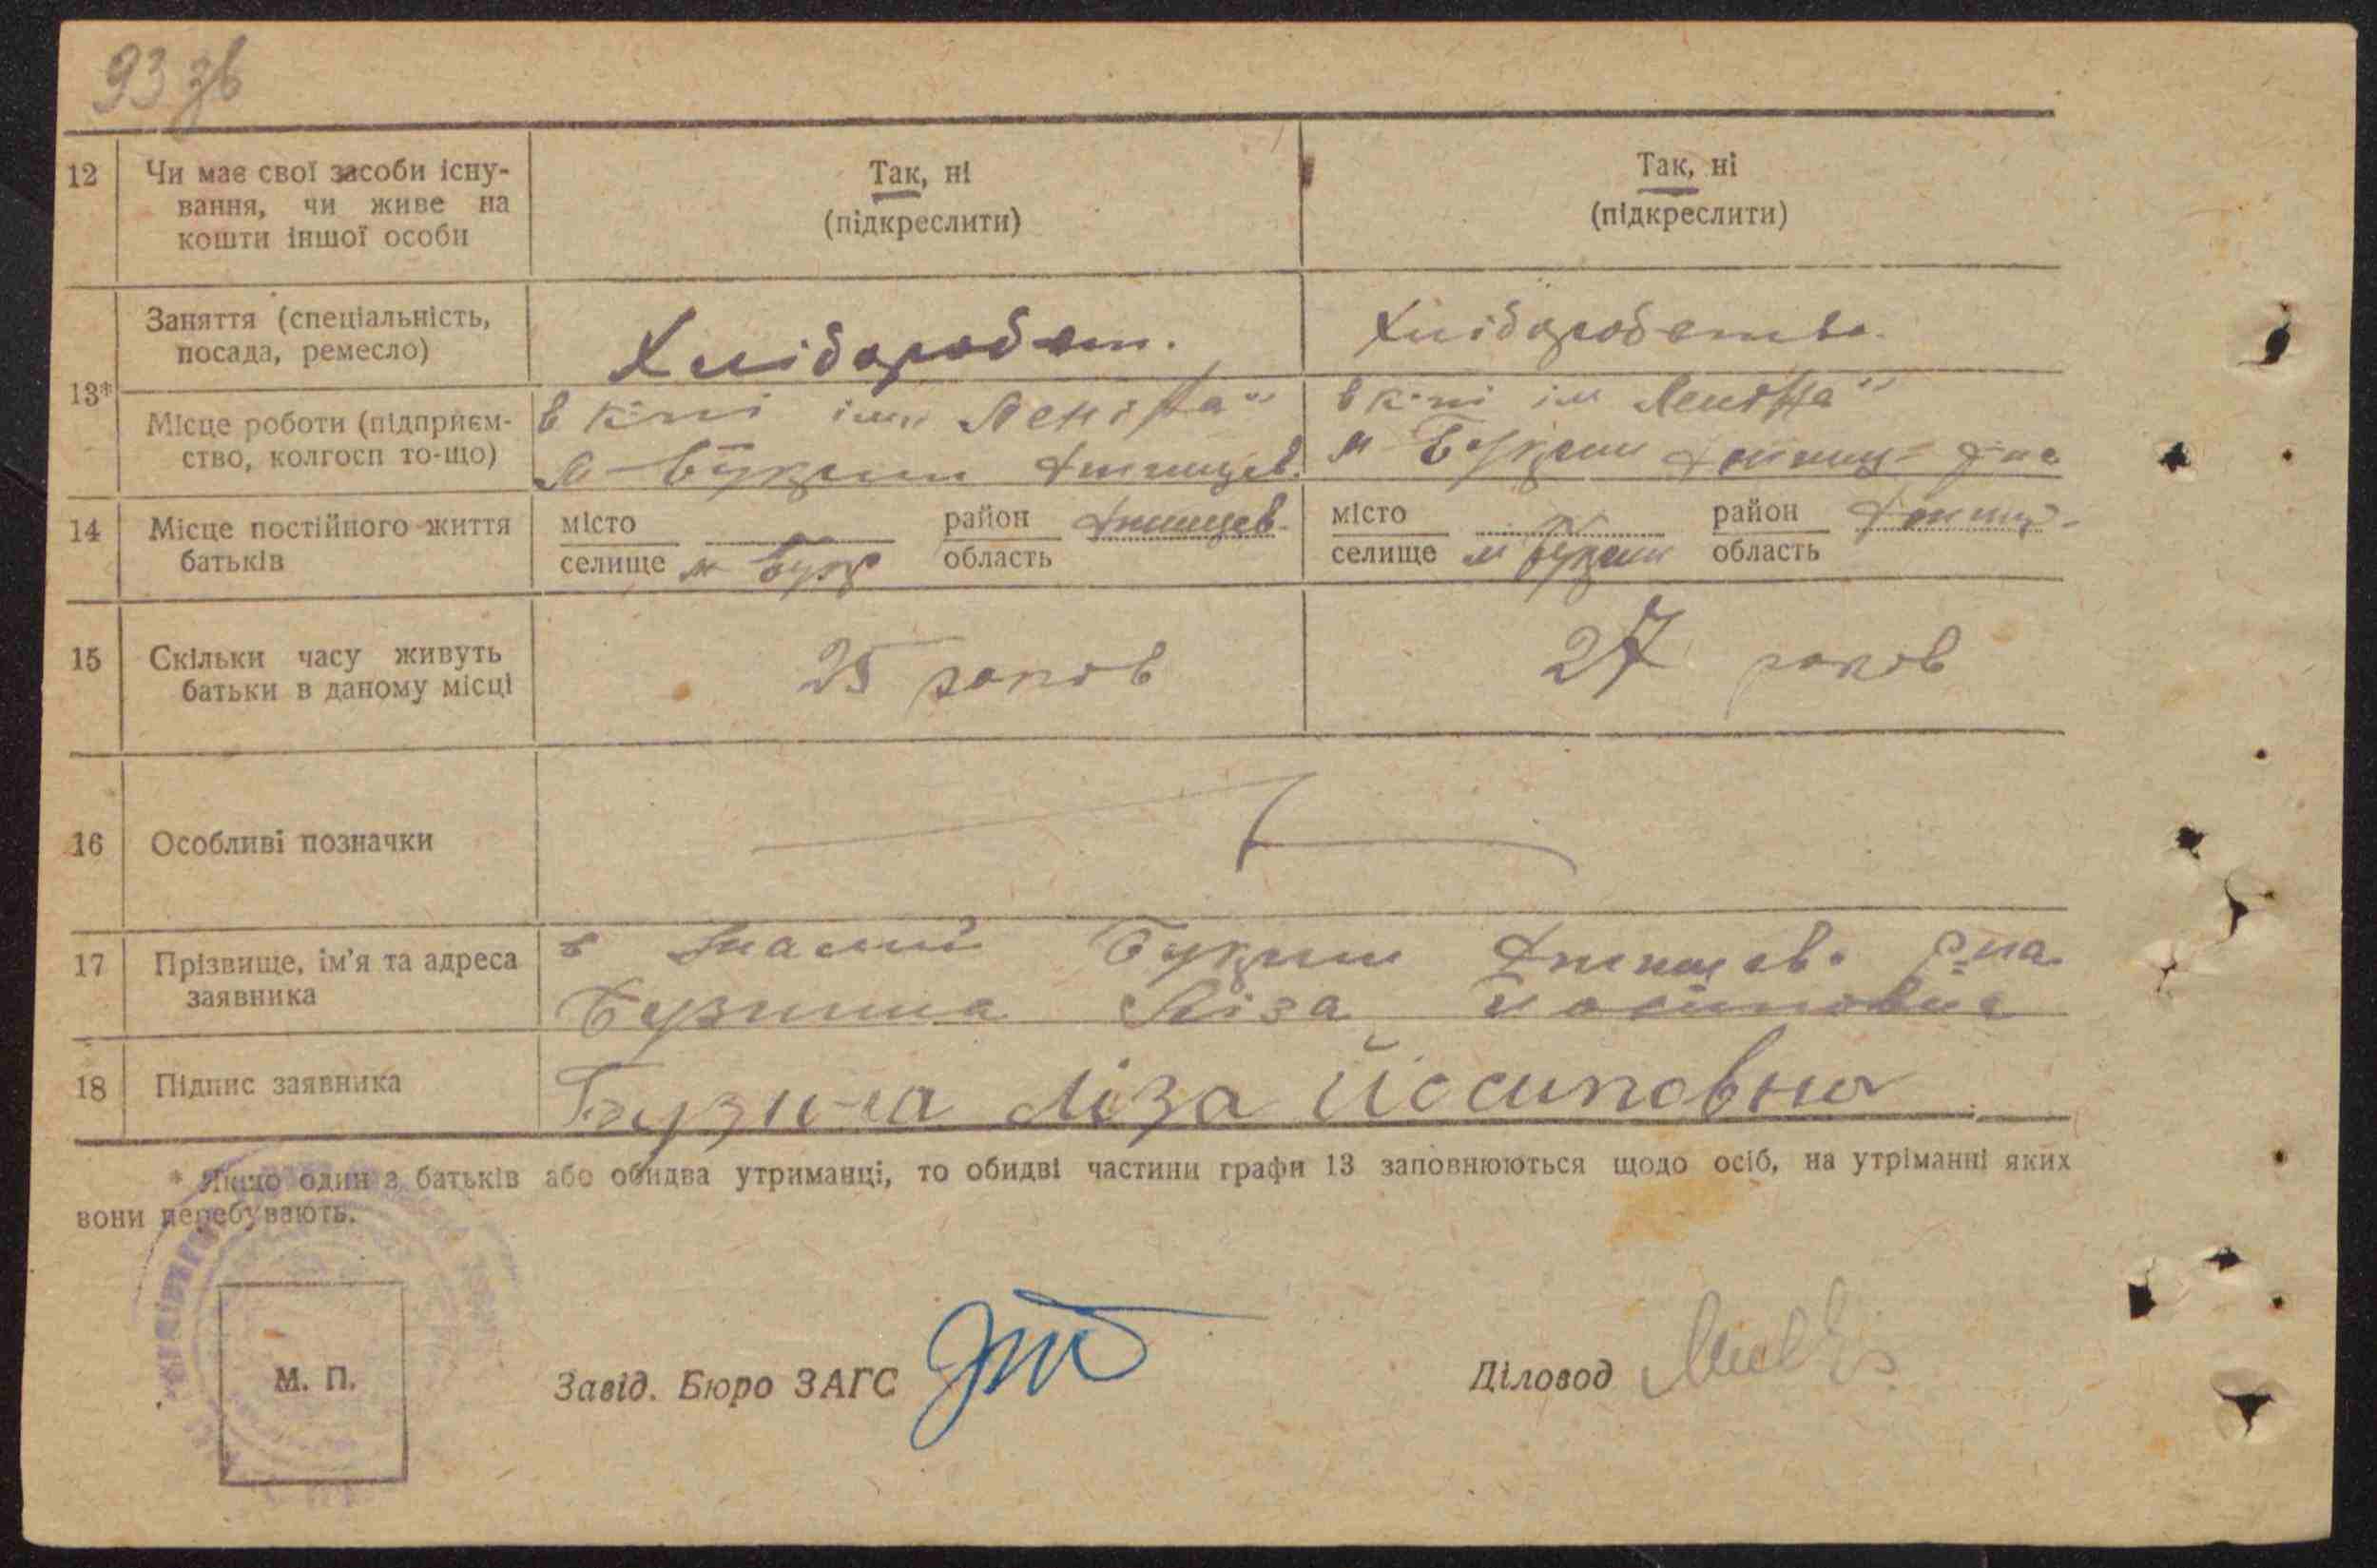 93 зв
12 Чи має свої засоби існу-
вання, чи живе на
кошти іншої особи
Так, ні
(підкреслити)
Так, ні
(підкреслити)
13*
Заняття (спеціальність,
посада, ремесло)
Хлібороб
Хлібороб
Місце роботи (підприєм-
ство, колгосп то-що)
в к-пі ім. Леніна"
м-Букрин
в к-пі ім Леніна"
м Букрин р-на
14 Місце постійного життя
батьків
місто
селище м Букр
район
область
місто
селище м Букрин
район
область
15 Скільки часу живуть
батьки в даному місці
25 років
27 років
16 Особливі позначки
17 Прізвище, ім'я та адреса
заявника
в Малий Букрин р-на
Бузина Ліза Йосиповна
18 Підпис заявника
Бузина Ліза Йосиповна
* Якщо один з батьків або обидва утриманці, то обидві частини графи 13 заповнюються щодо осіб, на утріманні яких
вони перебувають.
М. П.
Завід. Бюро ЗАГС
Діловод